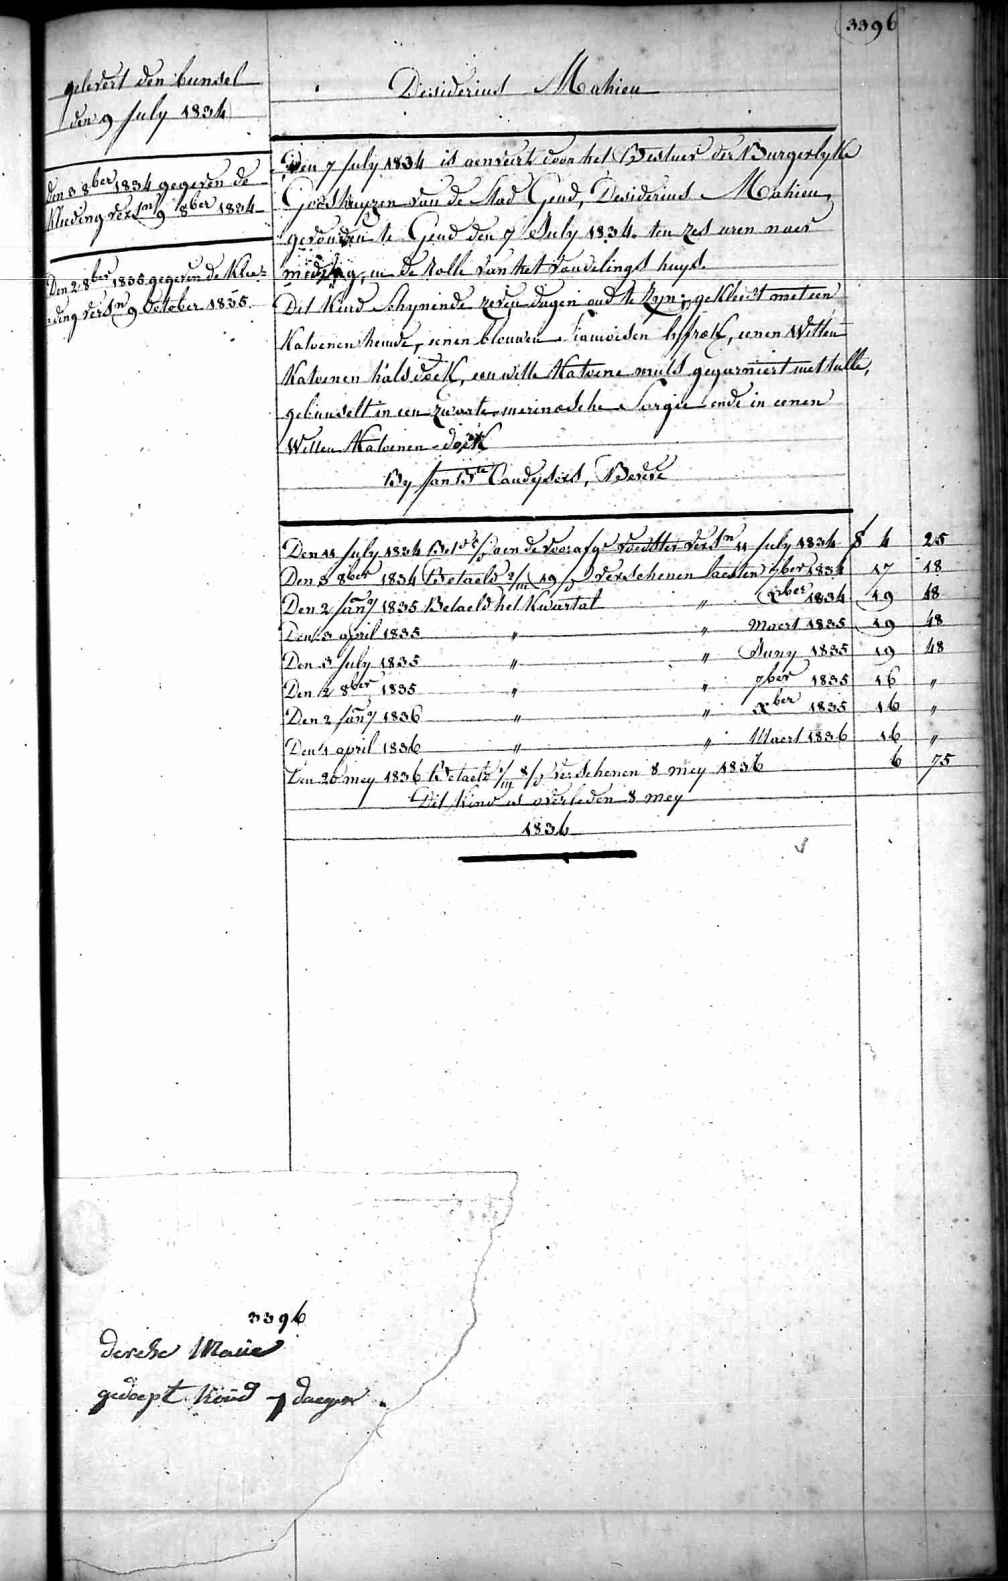 3396
gelevert den bunsel
den 9 July 1834
Desiderius Mahieu
Den 7 July 1834 is aenveert door het Bestuer der Burgerlyke
Godshuyzen van de Stad Gend, Desiderius Mahieu,
gevonden te Gend den 7 July 1834. ten zes uren naer
middag, in de Rolle van het vondelings huys.
Dit Kind schynende zeven dagen oud te zyn, gekleedt met een
Katoenen hemde, eenen blouwen lyfrok, eenen Witten
Katoenen halsdoek, een witte Katoene muts gegarniert met tulle,
gebunselt in een zwarte merinosche Sargie ende in eenen
Witten Katoenen doek
By Jan Bte
den 3 8ber 1834 gegeven de
Kleeding versn 9 8ber 1834
Den 2 8ber 1835 gegeven de Klee=
=ding versn 9 October 1835.
Den 11 July 1834 aen de voorafge voedster versn 11 July 1834 4 25
Den 3 8ber 1834 Betaeld 2/m 19/d verschenen laesten 7ber 1834 17 18
Den 2 Jany 1835 Betaeld het Kwartal " Xber 1834 19 48
Den 3 april 1835 " " Maert 1835 19 48
Den 3 July 1835 " " Juny 1835 19 48
Den 2 8ber 1835 " " 7ber 1835 16 "
Den 2 Jany 1836 " " Xber 1835 16 "
Den 1 april 1836 " " Maert 1836 16 "
Den 26 mey 1836 Betaeld 1/m 8/d verschenen 8 mey 1836 6 75
Dit Kind is overleden 8 mey
1836
3396
gedoept Kind 7 daegen